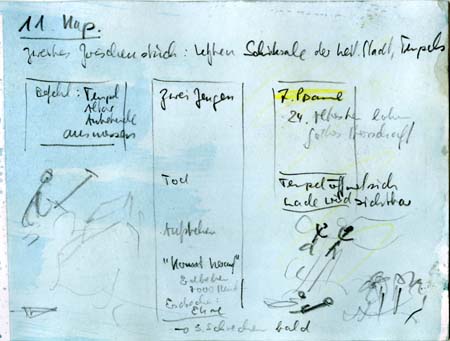 11 Kap.
Zweites Zwischenstück: Letzten Schicksale der heil. Stadt, Tempels
Befehl: Tempel
Altar
Anbetende
ausmessen
Zwei Zeugen
7. Posaune
24 Älteste loben
Gottes Herrschaft
Tod
Tempel öffnet sich
Lade wird sichtbar
Aufstehen
"Kommt herauf"
Erdbeben
7000
Ehre
→ 3. Schrecken bald